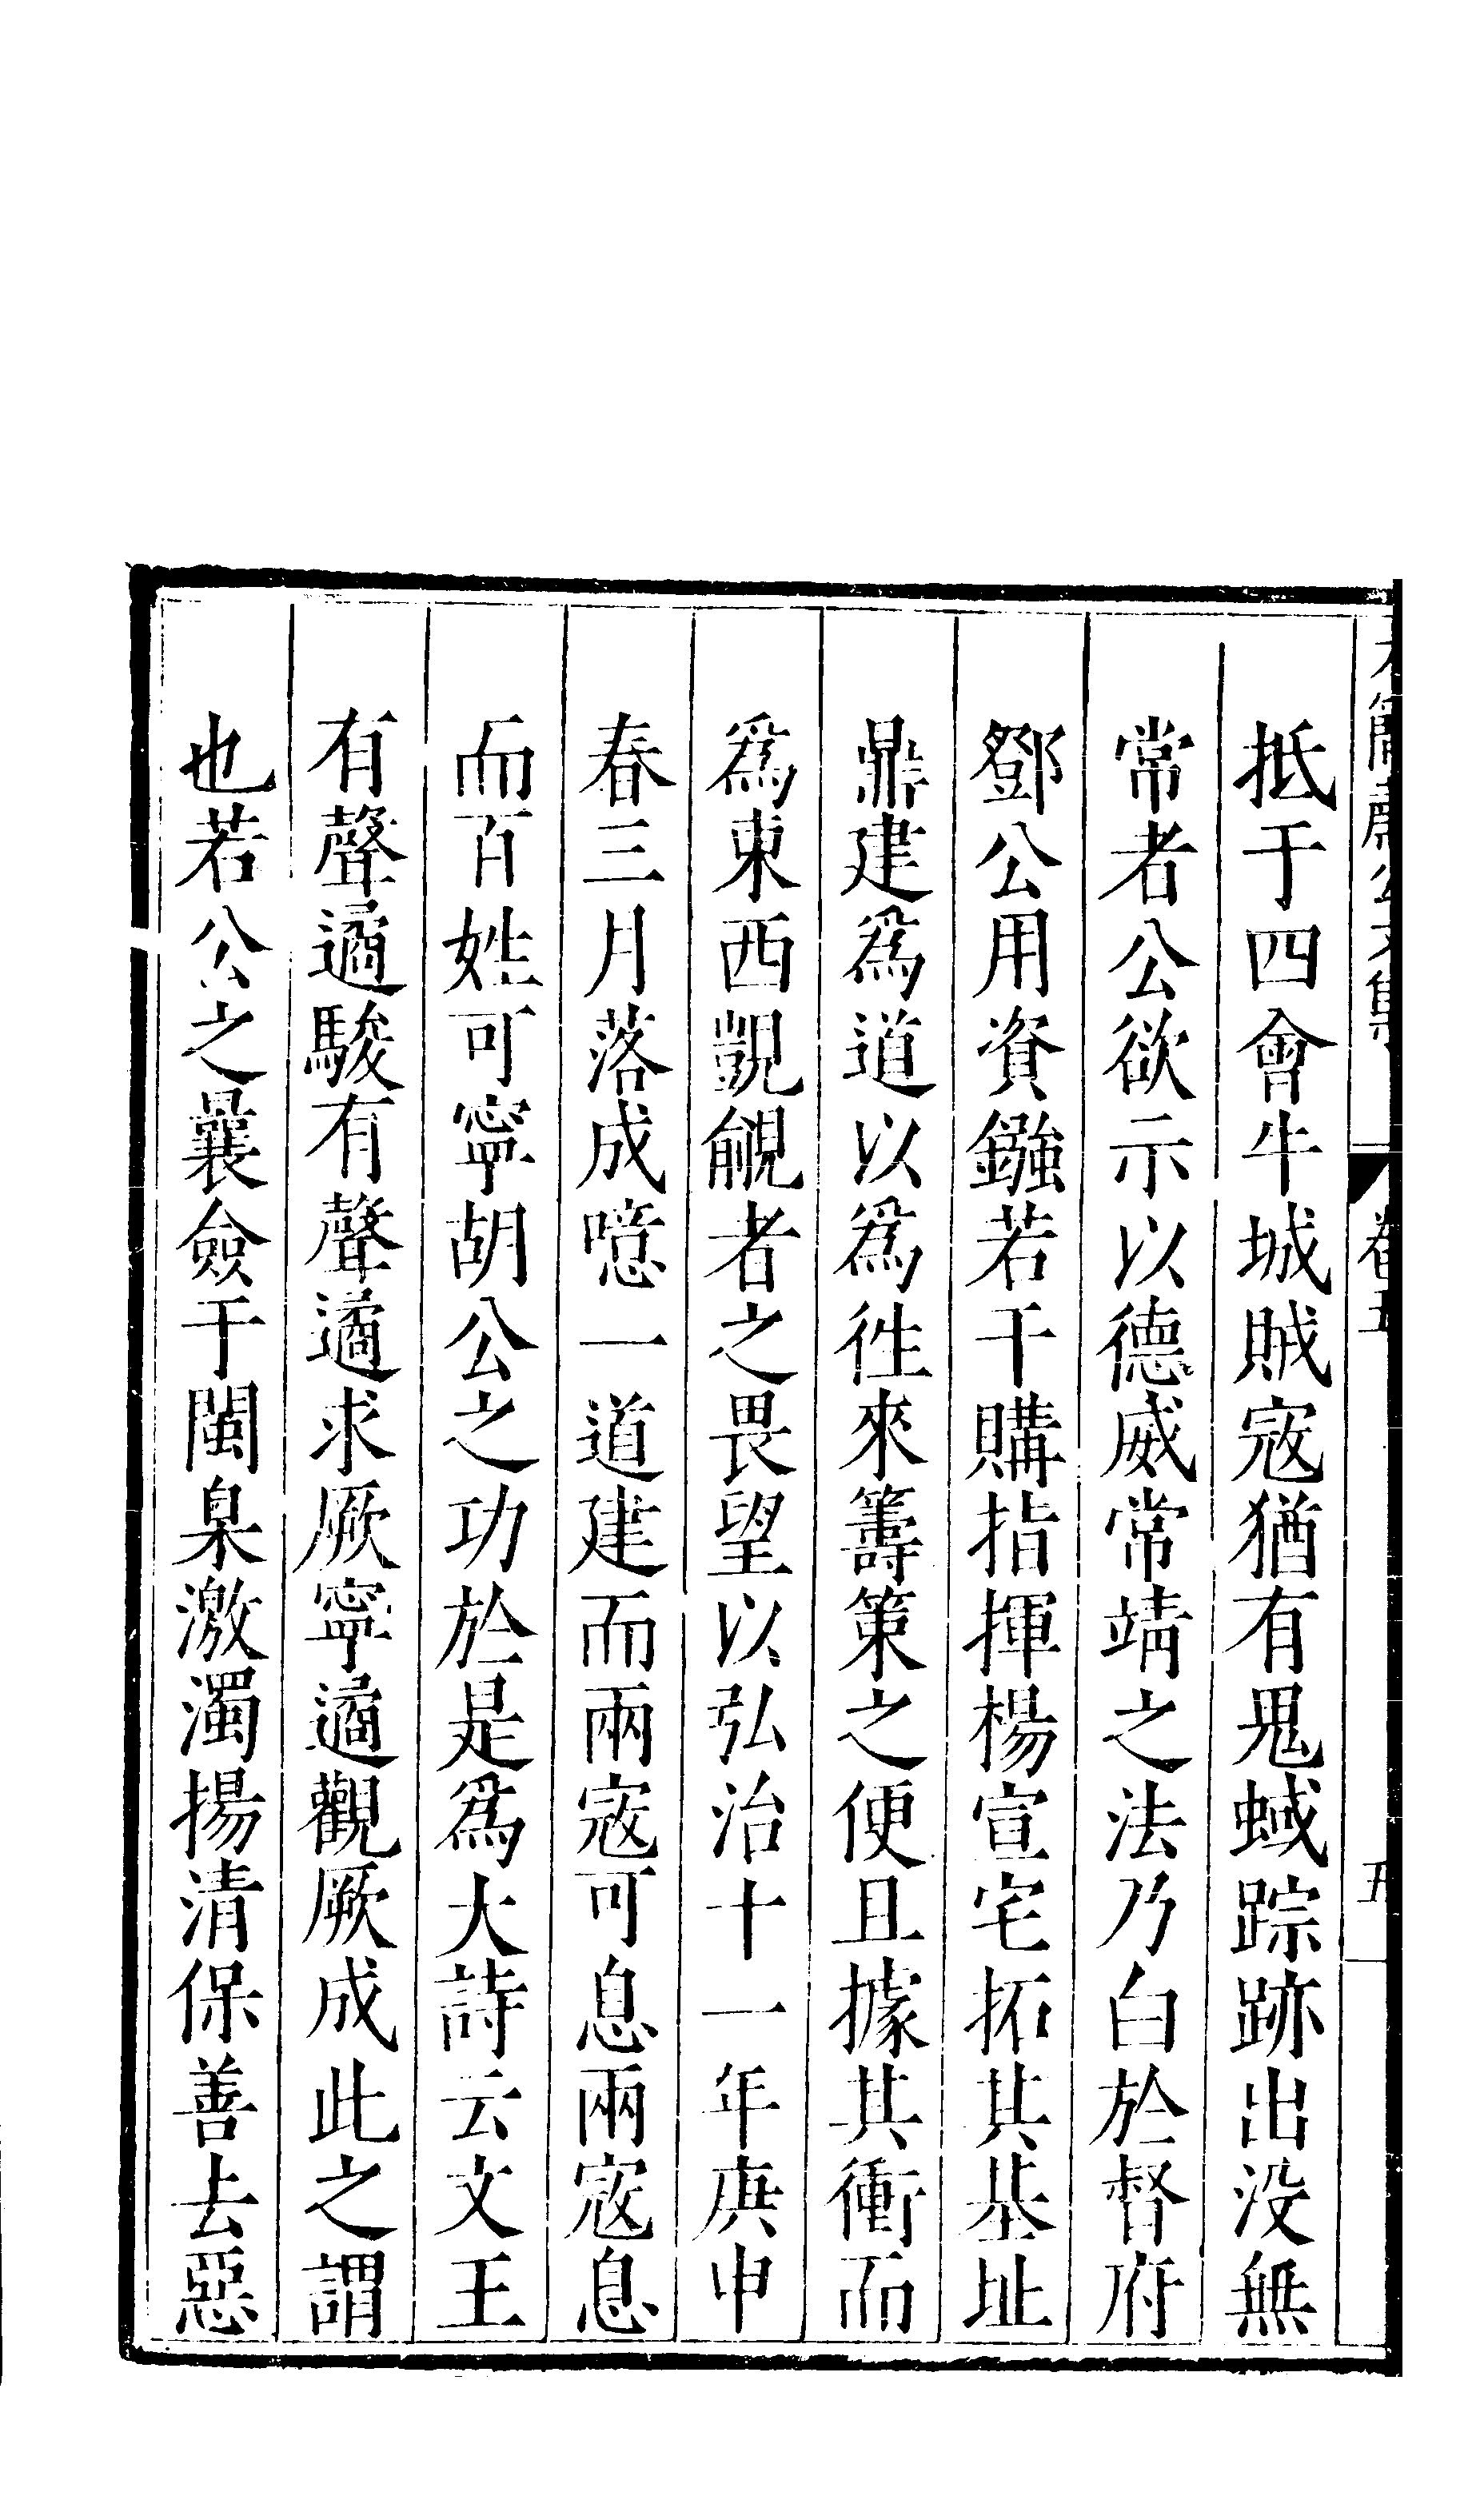 卷五
五
抵于四會牛城賊寇猶有鬼蜮踪跡出沒無
常者公欲示以德威常靖之法乃白於督府
鄧公用資鏹若干購指揮楊宣宅拓其基址
鼎建爲道以爲徃來籌策之便且據其衝而
爲東西覬覦者之畏望以弘治十一年庚申
春三月落成噫一道建而兩寇可息兩寇息
而百姓可寧胡公之功於是爲大詩云文王
有聲遹駿有聲遹求厥寧遹觀厥成此之謂
也若公之曩僉于閩臬激濁揚清保善去惡